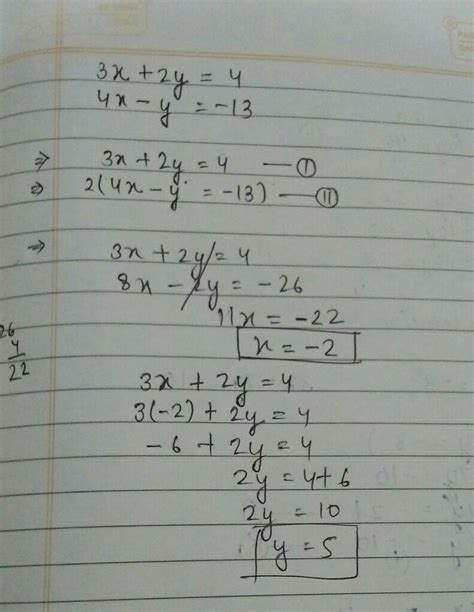 3x + 2y = 4
4x - y = -13
⇒ 3x + 2y = 4 — Ⓘ
⇒ 2(4x - y = -13) — Ⓘⓘ
⇒ 3x + 2y = 4
8x - 2y = -26
11x = -22
x = -2
26
4
22
3x + 2y = 4
3(-2) + 2y = 4
-6 + 2y = 4
2y = 4+6
2y = 10
y = 5